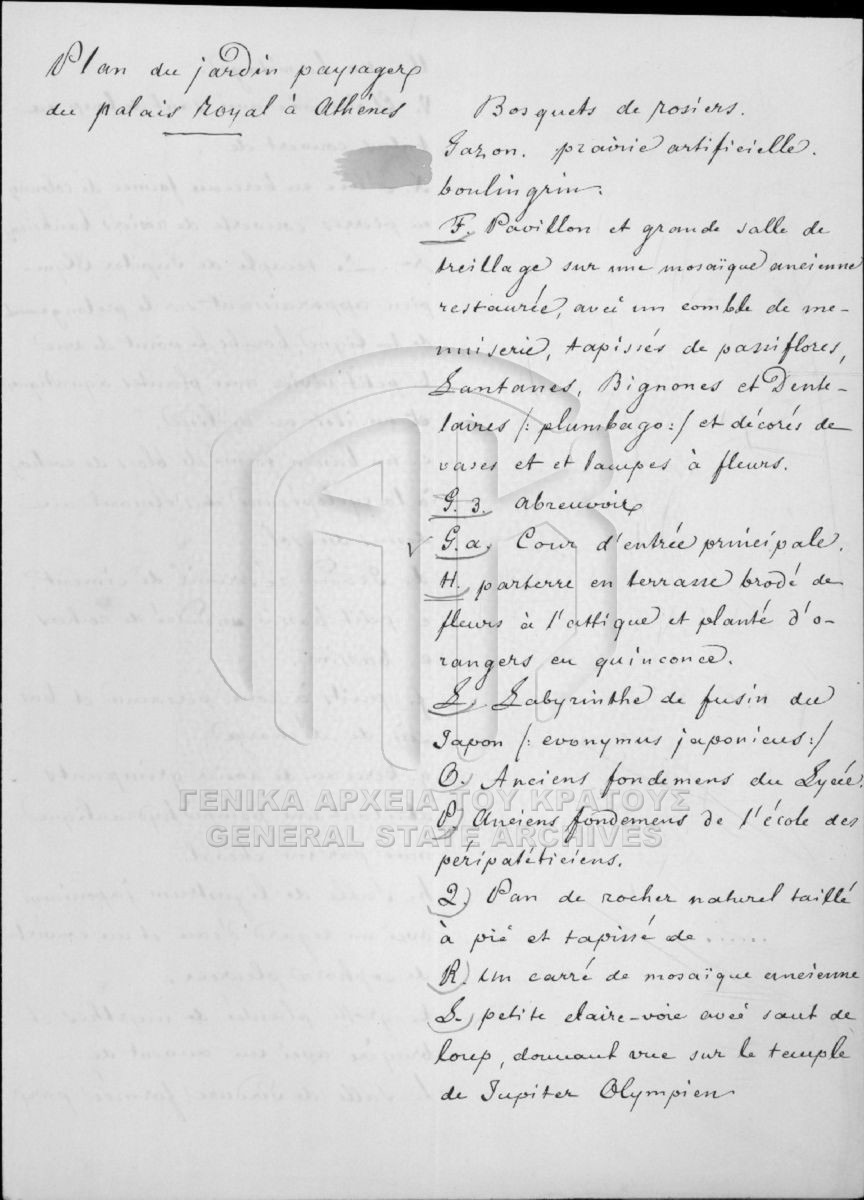 Plan du jardin paysager
du palais royal à Athénes
Bosquets de rosiers.
Gazon. prairie artificielle.
boulingrin.
F. Pavillon et grande salle de
treillage sur une mosaïque ancienne
restaurée, avec un comble de me-
nuiserie, tapissés de passiflores,
Lantanes, Bignones et Dente-
laires /: plumbago :/ et décorés de
vases et et lampes à fleurs.
G. 3. abreuvoir
G. a. Cour d'entrée principale.
H. parterre en terrasse brodé de
fleurs à l'attique et planté d'o-
rangers en quinconce.
L. Labyrinthe de fusin du
Japon /: evonymus japonicus :/
O. Anciens fondemens du Lycée.
P) Anciens fondemens de l'école des
péripatéticiens.
Q) Pan de rocher naturel taillé
à pic et tapissé de ......
R. Un carré de mosaïque ancienne
S. petite claire-voie avec saut de
loup, donnant vue sur le temple
de Jupiter Olympien
ΓΕΝΙΚΑ ΑΡΧΕΙΑ ΤΟΥ ΚΡΑΤΟΥΣ
GENERAL STATE ARCHIVES